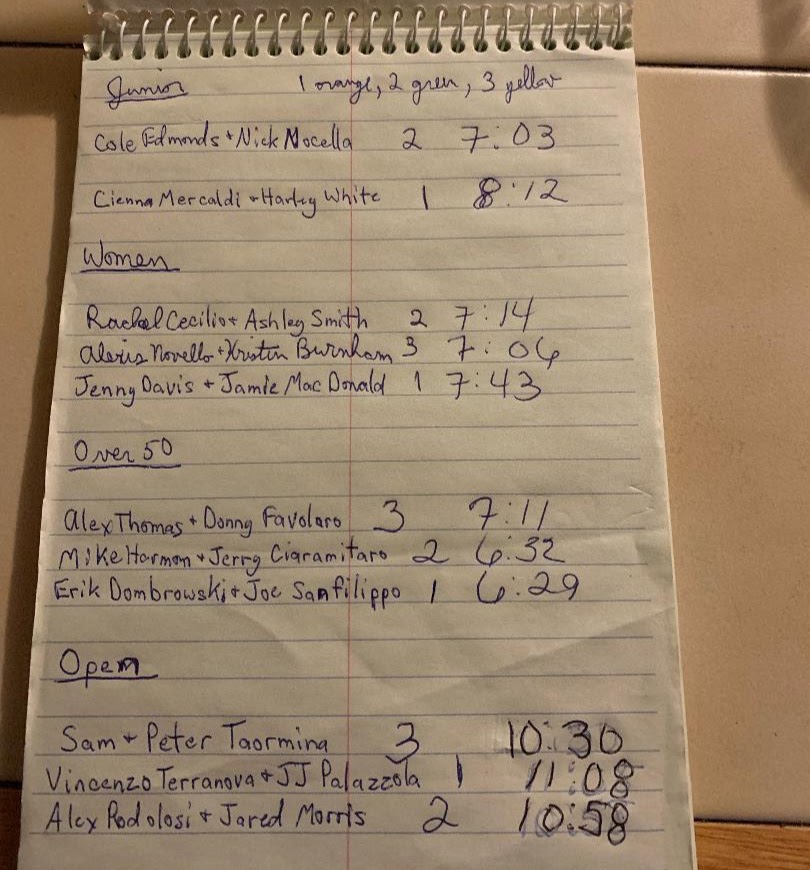 Junior 1 orange, 2 green, 3 yellow
Cole Edmonds + Nick Nocella 2 7:03
Cienna Mercaldi + Harley White 1 8:12
Women
Rachel Cecilio + Ashley Smith 2 7:14
Alexis Novello + Kristin Burnham 3 7:06
Jenny Davis + Jamie MacDonald 1 7:43
Over 50
Alex Thomas + Donny Favolaro 3 7:11
Mike Harmon + Jerry Ciaramitaro 2 6:32
Erik Dombrowski + Joe Sanfilippo 1 6:29
Open
Sam + Peter Taormina 3 10:30
Vincenzo Terranova + JJ Palazzola 1 11:08
Alex Podolosi + Jared Morris 2 10:58